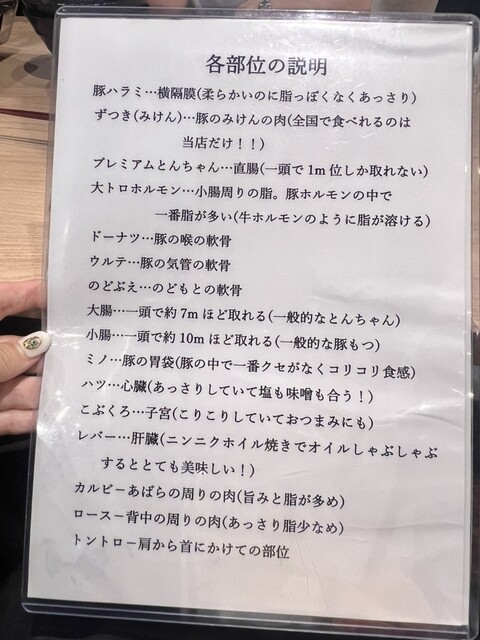 各部位の説明
豚ハラミ…横隔膜(柔らかいのに脂っぽくなくあっさり)
ずつき(みけん)…豚のみけんの肉(全国で食べれるのは
当店だけ！！)
プレミアムとんちゃん…直腸(一頭で1m位しか取れない)
大トロホルモン…小腸周りの脂。豚ホルモンの中で
一番脂が多い(牛ホルモンのように脂が溶ける)
ドーナツ…豚の喉の軟骨
ウルテ…豚の気管の軟骨
のどぶえ…のどもとの軟骨
大腸…一頭で約7mほど取れる(一般的なとんちゃん)
小腸…一頭で約10mほど取れる(一般的な豚もつ)
ミノ…豚の胃袋(豚の中で一番クセがなくコリコリ食感)
ハツ…心臓(あっさりしていて塩も味噌も合う！)
こぶくろ…子宮(こりこりしていておつまみにも)
レバー…肝臓(ニンニクホイル焼きでオイルしゃぶしゃぶ
するととても美味しい！)
カルビ－あばらの周りの肉(旨みと脂が多め)
ロース－背中の周りの肉(あっさり脂少なめ)
トントロ－肩から首にかけての部位